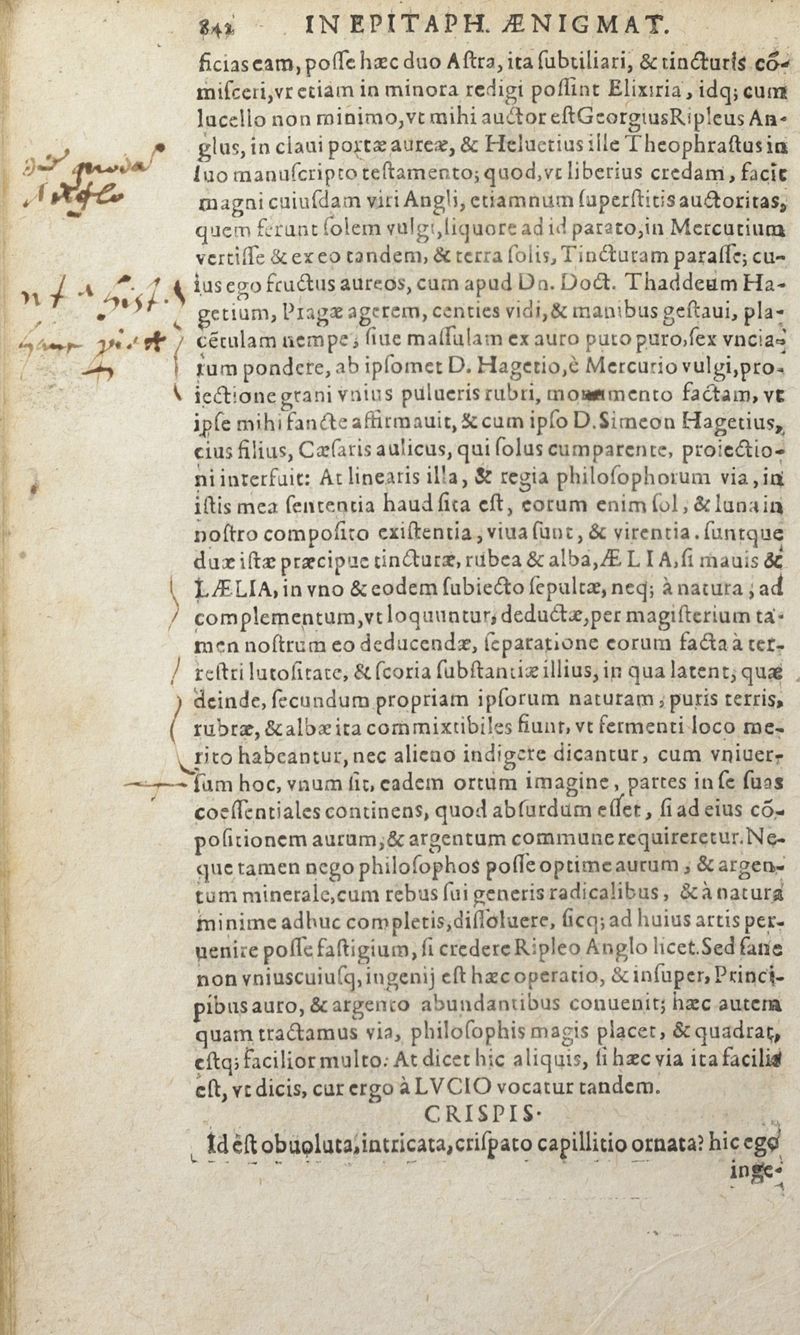 842 IN EPITAPH. ÆNIGMAT.
ficias eam, posse hæc duo Astra, ita subtiliari, & tincturis cõ-
misceri, vt etiam in minora redigi possint Elixiria, idq; cum
lucello non minimo, vt mihi auctor est Georgius Ripleus An-
glus, in claui portæ aureæ, & Heluetius ille Theophrastus in
suo manuscripto testamento; quod, vt liberius credam, facit
magni cuiusdam viri Angli, etiamnum superstitis auctoritas,
quem ferunt solem vulgi, liquore ad id parato, in Mercurium
vertisse & ex eo tandem, & terra solis, Tincturam parasse; cu-
ius ego fructus aureos, cum apud Dn. Doct. Thaddeum Ha-
getium, Pragæ agerem, centies vidi, & manibus gestaui, pla-
cẽtulam nempe, siue massulam ex auro puto puro, sex vncia-
rum pondere, ab ipsomet D. Hagetio, è Mercurio vulgi, pro-
iectione grani vnius pulueris rubri, momento factam, vt
ipse mihi sancte affirmauit, & cum ipso D. Simeon Hagetius,
eius filius, Cæsaris aulicus, qui solus cum parente, proiectio-
ni interfuit: At linearis illa, & regia philosophorum via, in
istis mea sententia haud sita est, eorum enim sol, & luna in
nostro composito existentia, viua sunt, & virentia. suntque
duæ istæ præcipuæ tincturæ, rubea & alba, ÆLIA, si mauis &
LÆLIA, in vno & eodem subiecto sepultæ, neq; à natura, ad
complementum, vt loquuntur, deductæ, per magisterium ta-
men nostrum eo deducendæ, separatione eorum facta à ter-
restri lutositate, & scoria substantiæ illius, in qua latent, quæ
deinde, secundum propriam ipsorum naturam, puris terris,
rubræ, & albæ ita commixtibiles fiunt, vt fermenti loco me-
rito habeantur, nec alieno indigere dicantur, cum vniuer-
sum hoc, vnum sit, eadem ortum imagine, partes in se suas
coessentiales continens, quod absurdum esset, si ad eius cõ-
positionem aurum, & argentum commune requireretur. Ne-
que tamen nego philosophos posse optime aurum, & argen-
tum minerale, cum rebus sui generis radicalibus, & à natura
minime adhuc completis, dissoluere, sicq; ad huius artis per-
uenire posse fastigium, si credere Ripleo Anglo licet. Sed sane
non vniuscuiusq, ingenij est hæc operatio, & insuper, Princi-
pibus auro, & argento abundantibus conuenit; hæc autem
quam tractamus via, philosophis magis placet, & quadrat,
estq; facilior multo. At dicet hic aliquis, si hæc via ita facilis
est, vt dicis, cur ergo à LVCIO vocatur tandem.
CRISPIS.
Id est obuoluta, intricata, crispato capillitio ornata? hic ego
inge-